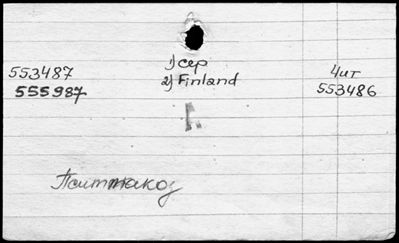 553487
555987
1) сер
2) Finland
4 шт
553486
Г.
Пситтакоз